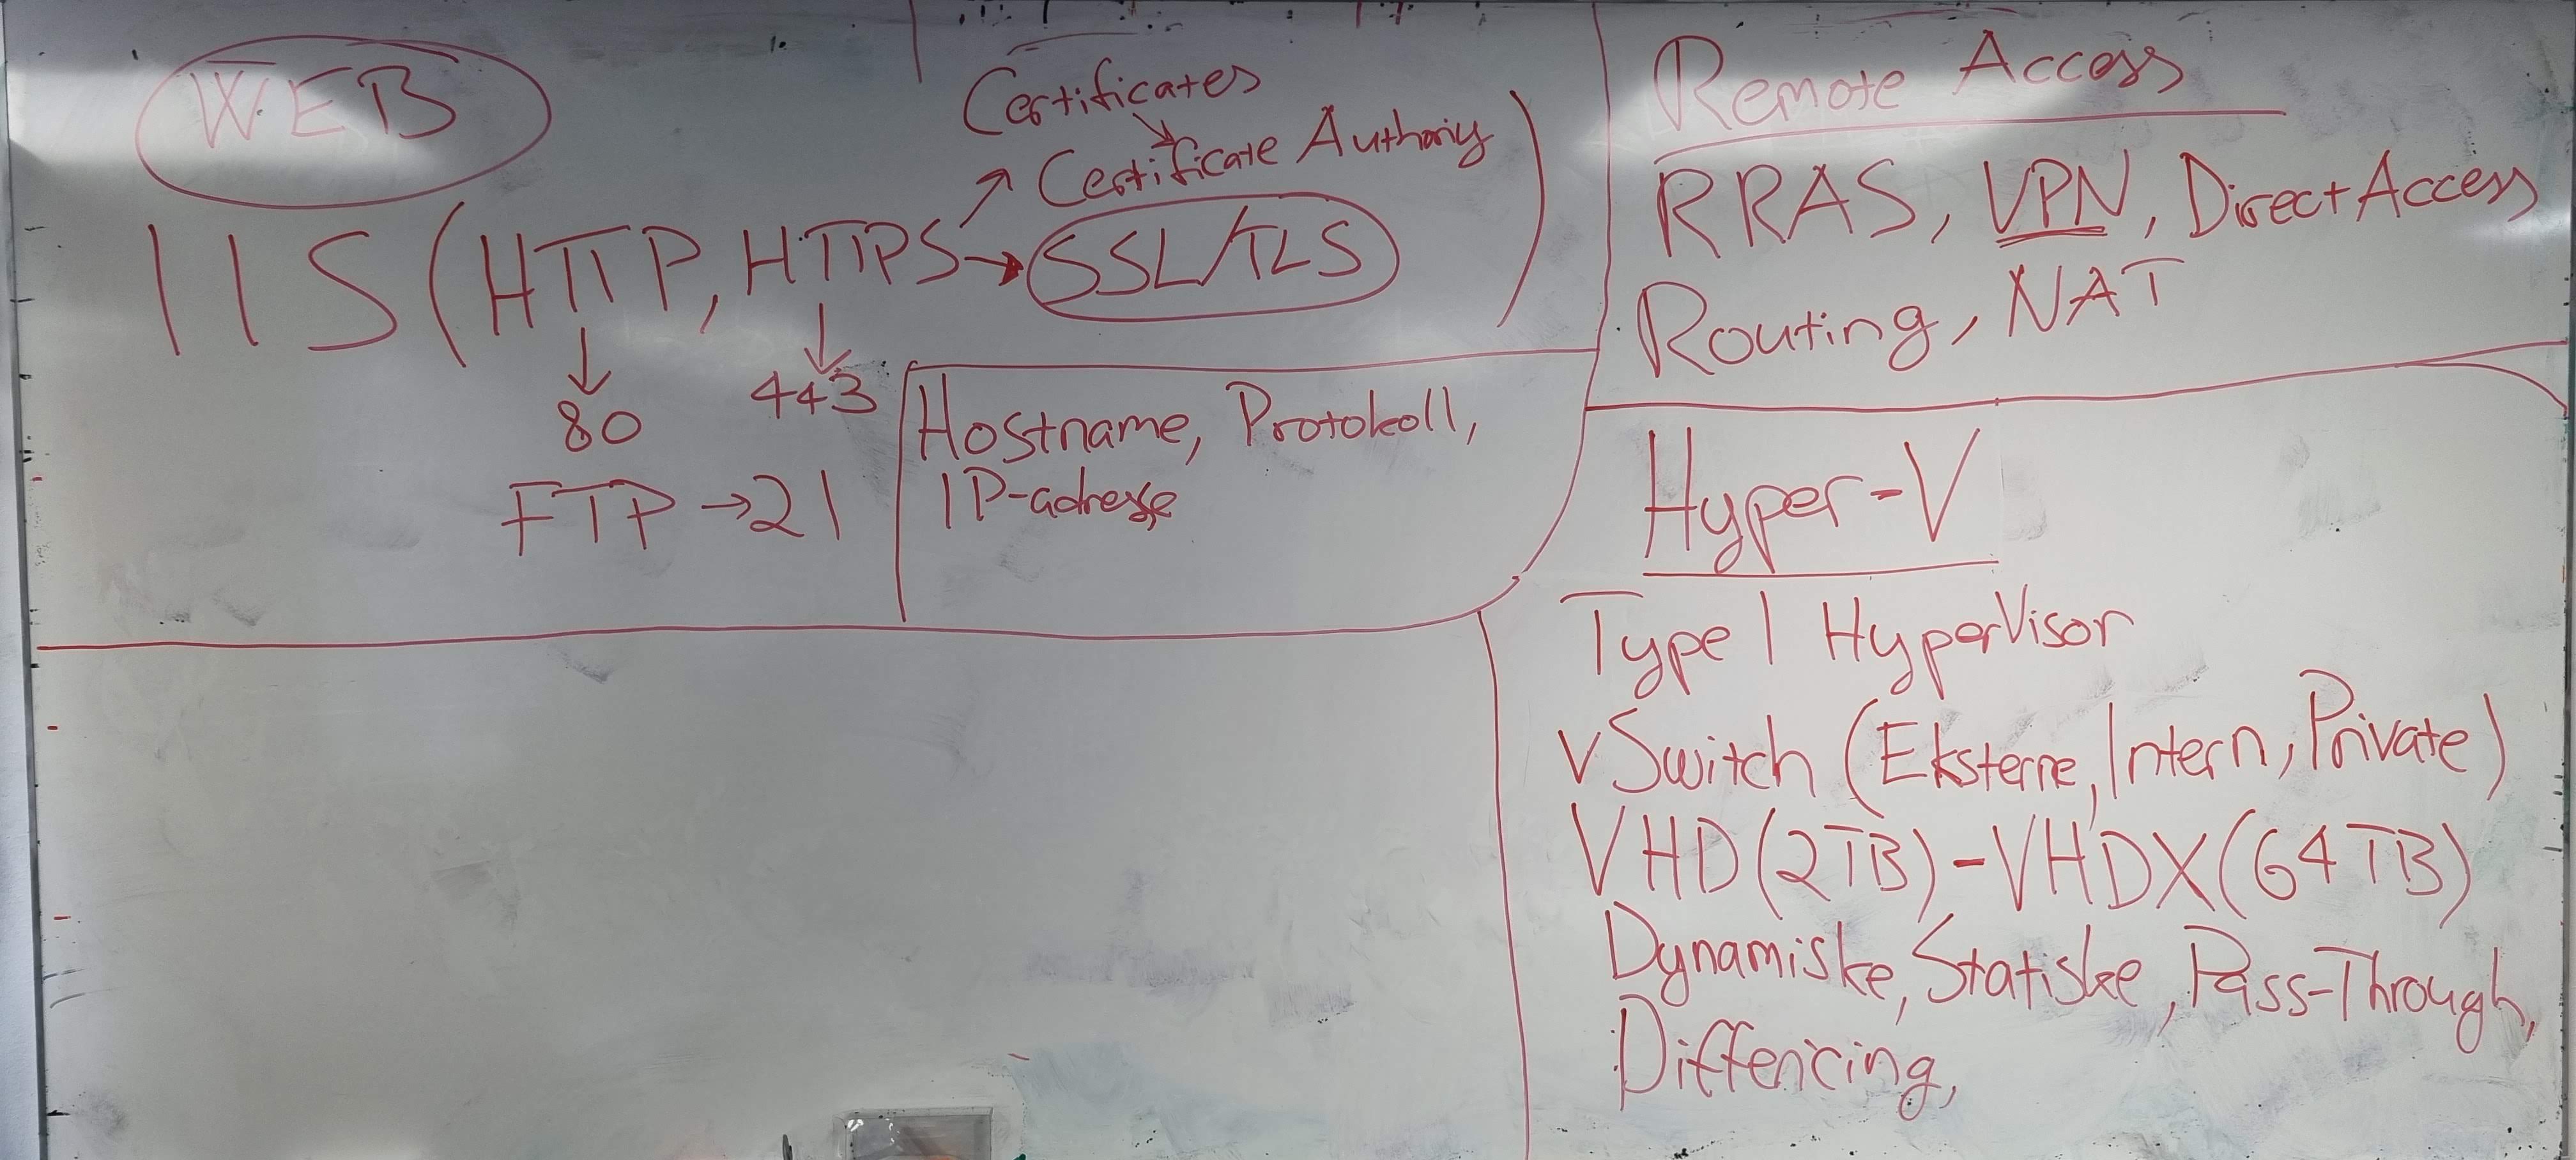 WEB
Certificates
Certificate Authoriy
IIS (HTTP, HTTPS → SSL/TLS)
80
443
FTP → 21
Hostname, Protokoll,
IP-adresse
Remote Access
RRAS, VPN, DirectAccess
Routing, NAT
Hyper-V
Type 1 HyperVisor
vSwitch (Eksterne, Intern, Private)
VHD(2TB)-VHDX(64TB)
Dynamiske, Statiske, Pass-Through,
Differicing,